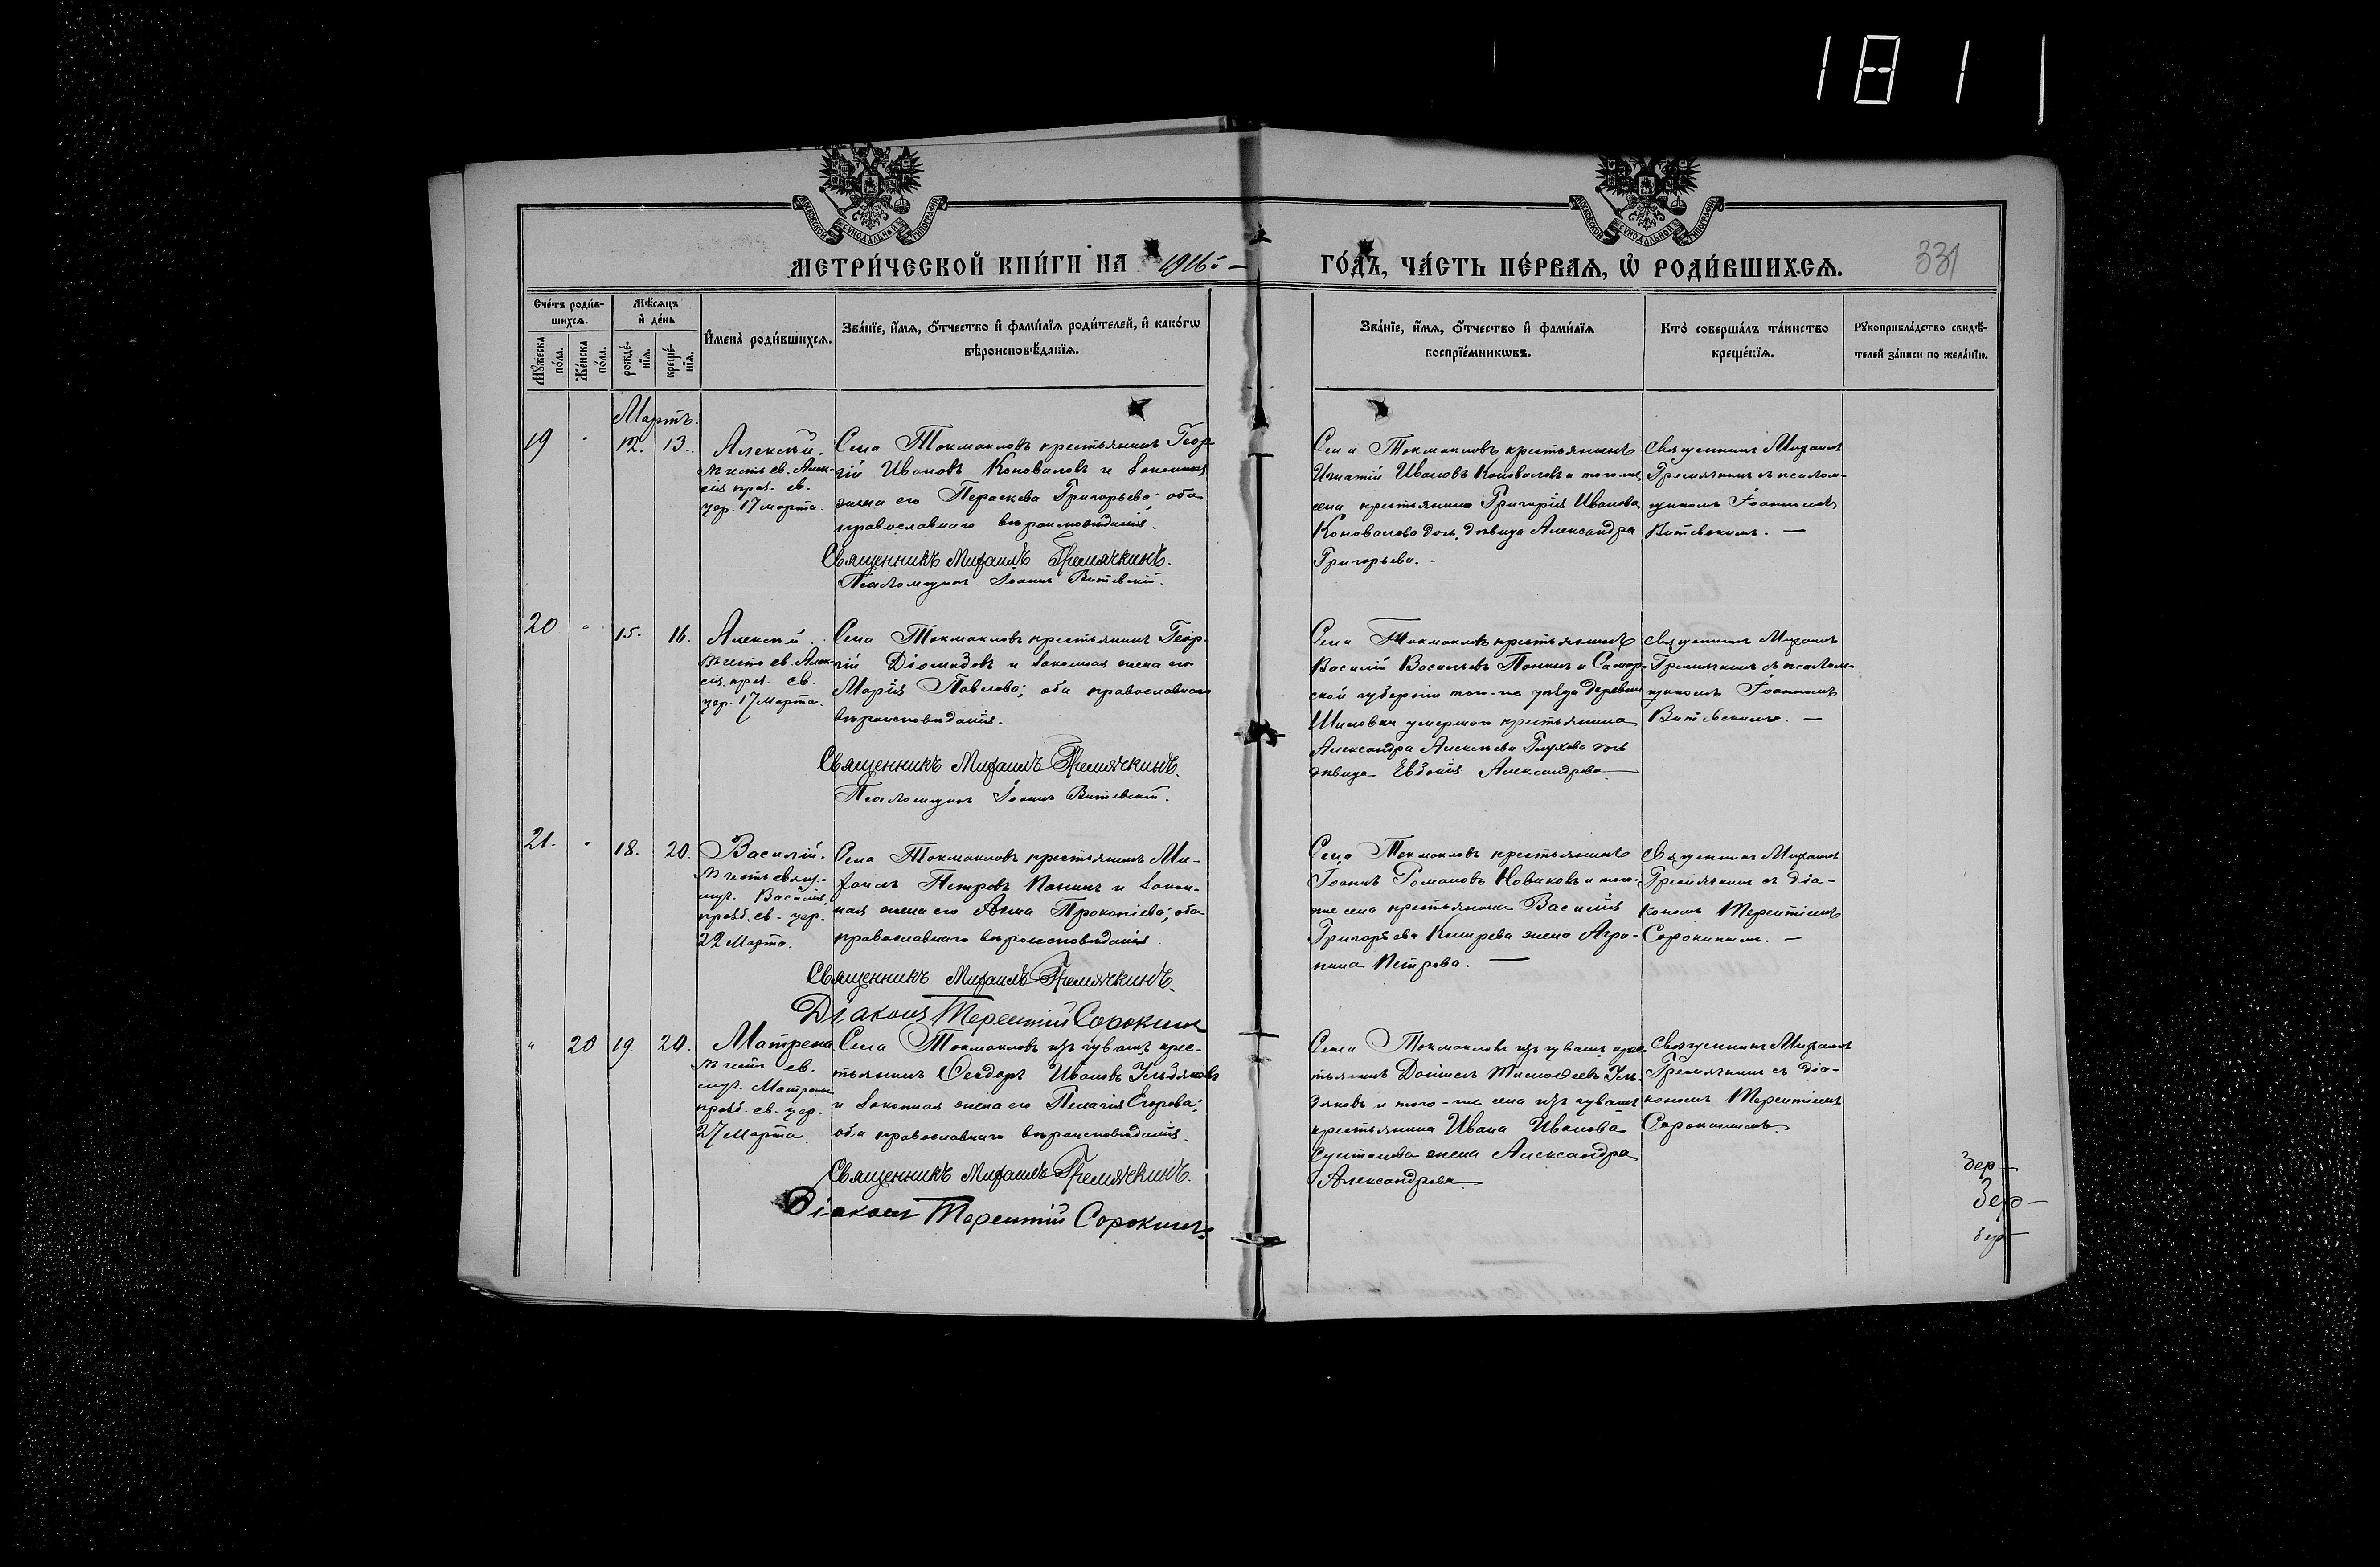 1811
МОСКОВСКОЙ СѴНОДАЛЬНОЙ ТИПОГРАФІИ
МОСКОВСКОЙ СѴНОДАЛЬНОЙ ТИПОГРАФІИ
МЕТРИ́ЧЕСКОЙ КНИ́ГИ НА 1916 г.
ГО́ДЪ, ЧА́СТЬ ПЕ́РВАѦ, Ѡ҆ РОДИ́ВШИХСѦ.
331
Сче́тъ роди́в-
шихсѧ.
Мѣ́сѧцъ
и҆ де́нь
Мꙋ́жеска
по́ла.
Же́нска
по́ла.
рожде́-
нїѧ.
креще́-
нїѧ.
И҆мена̀ роди́вшихсѧ.
Зва́нїе, и҆́мѧ, ѻ҆́тчество и҆ фами́лїѧ роди́телей, и҆ како́гѡ
вѣроисповѣ́данїѧ.
Зва́нїе, и҆́мѧ, ѻ҆́тчество и҆ фами́лїѧ
воспрїе́мникѡвъ.
Кто̀ соверша́лъ та́инство
креще́нїѧ.
Рꙋкоприкла́дство свидѣ́-
телей за́писи по жела́нїю.
Мартъ.
19 " 12. 13.
Алексѣй.
Въ честь св. Алек-
сія прав. св.
цер. 17 марта.
Села Токмакловъ крестьянинъ Геор-
гій Ивановъ Коноваловъ и законная
жена его Параскева Григорьева; оба
православнаго вѣроисповѣданія.
Священникъ Михаилъ Гремячкинъ.
Псаломщикъ Іоаннъ Витевскій.
Села Токмакловъ крестьянинъ
Игнатій Ивановъ Коноваловъ и того-же
села крестьянина Григорія Иванова
Коновалова дочь, дѣвица Александра
Григорьева.
Священникъ Михаилъ
Гремячкинъ съ псалом-
щикомъ Іоанномъ
Витевскимъ. —
20 " 15. 16.
Алексѣй.
Въ честь св. Алек-
сія прав. св.
цер. 17 Марта.
Села Токмакловъ крестьянинъ Геор-
гій Діомидовъ и законная жена его
Марія Павлова; оба православнаго
вѣроисповѣданія.
Священникъ Михаилъ Гремячкинъ.
Псаломщикъ Іоаннъ Витевскій.
Села Токмакловъ крестьянинъ
Василій Васильевъ Панинъ и Самар-
ской губерніи того-же уѣзда деревни
умершаго крестьянина
Александра Алексѣева Глухова дочь
дѣвица Евдокія Александрова —
Священникъ Михаилъ
Гремячкинъ съ псалом-
щикомъ Іоанномъ
Витевскимъ. —
21. " 18. 20.
Василій.
Въ честь свящ.-
муч. Василія,
празд. св. цер.
22 Марта.
Села Токмакловъ крестьянинъ Ми-
хаилъ Петровъ Панинъ и закон-
ная жена его Анна Прокопіева; оба
православнаго вѣроисповѣданія.
Священникъ Михаилъ Гремячкинъ.
Діаконъ Терентій Сорокинъ
Села Токмакловъ крестьянинъ
Іоаннъ Романовъ Новиковъ и того-
же села крестьянина Василія
Григорьева жена Агри-
пина Петрова. —
Священникъ Михаилъ
Гремячкинъ съ діа-
кономъ Терентіемъ
Сорокинымъ. —
" 20 19. 20.
Матрена
Въ честь св.
муч. Матроны
празд. св. цер.
27 Марта.
Села Токмакловъ изъ чувашъ крес-
тьянинъ Ѳеодоръ Ивановъ Ульдяковъ
и законная жена его Пелагія Егорова;
оба православнаго вѣроисповѣданія.
Священникъ Михаилъ Гремячкинъ.
Діаконъ Терентій Сорокинъ
Села Токмаклов изъ чувашъ крес-
тьянинъ Даніилъ Тимоѳеевъ Уль-
дяковъ и того-же села изъ чувашъ
крестьянина Ивана Иванова
Султанова жена Александра
Александрова.
Священникъ Михаилъ
Гремячкинъ съ діа-
кономъ Терентіемъ
Сорокинымъ